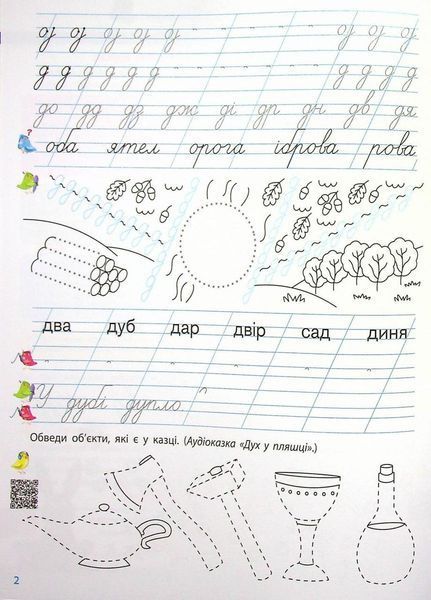 д д д д д д д д
д д д д д д д д д д
до дд дз дж ді др дн дв дя
оба ятел орога іброва рова
два дуб дар двір сад диня
У дубі дупло.
Обведи об'єкти, які є у казці. (Аудіоказка «Дух у пляшці».)
2